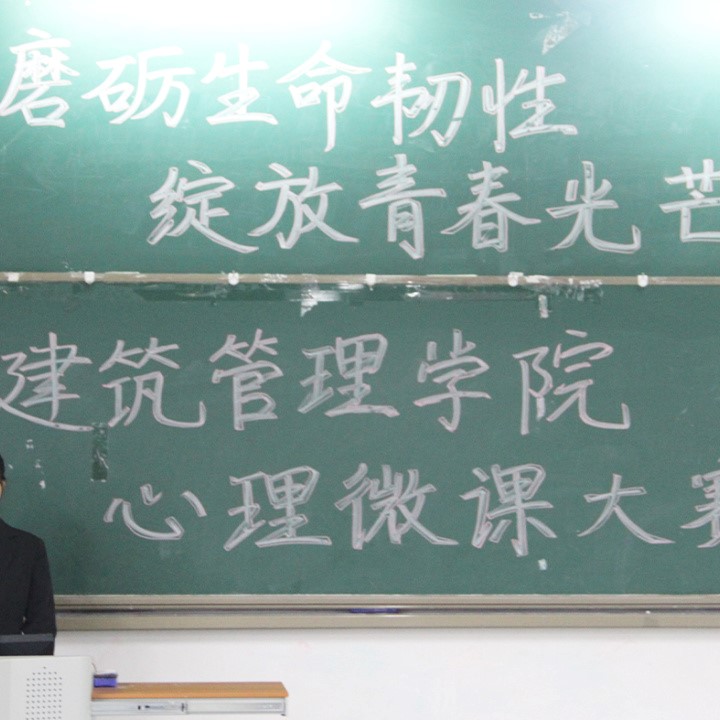 磨砺生命韧性
绽放青春光芒
建筑管理学院
心理微课大赛